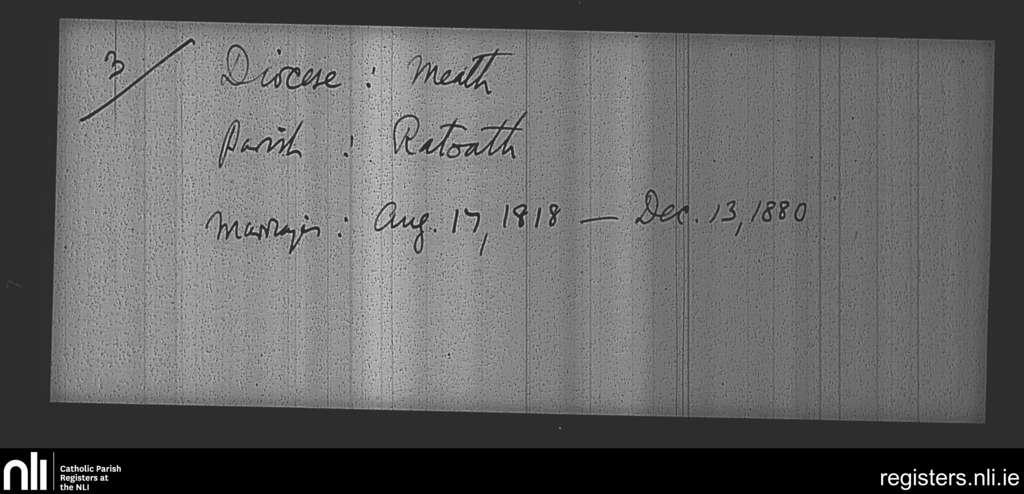 3/
Diocese : Meath
Parish : Ratoath
Marriages : Aug. 17, 1818 — Dec. 13, 1880
nli
Catholic Parish
Registers at
the NLI
registers.nli.ie